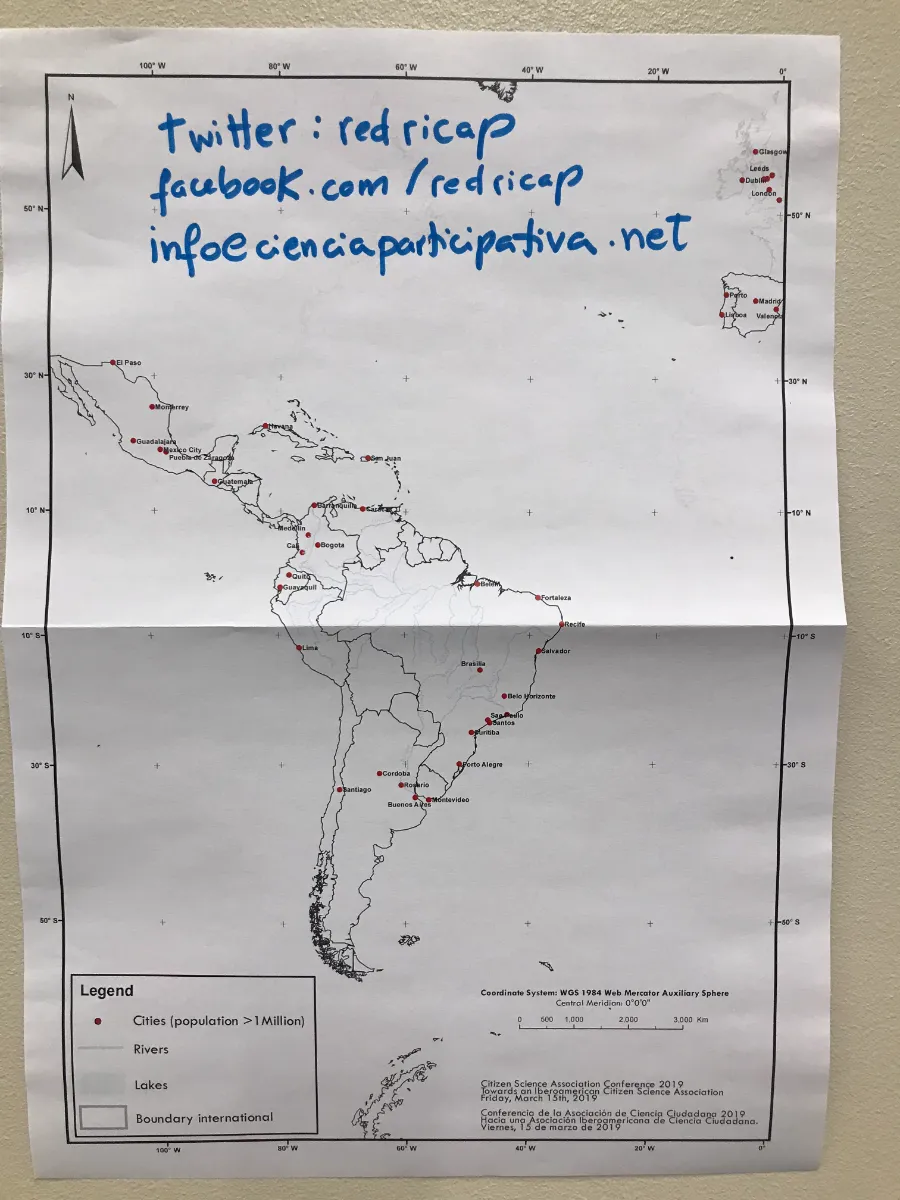 100° W 80° W 60° W 40° W 20° W 0°
N
twitter: redricap
facebook.com/redricap
info@cienciaparticipativa.net
Glasgow
Leeds
Dublin
London
50° N 50° N
Porto Madrid
Lisboa Valencia
30° N 30° N
El Paso
Monterrey
Havana
Guadalajara
Mexico City
Puebla de Zaragoza
San Juan
Guatemala
10° N 10° N
Barranquilla Caracas
Medellin
Cali Bogota
Quito
Guayaquil
Belem
Fortaleza
Recife
10° S 10° S
Lima
Salvador
Brasilia
Belo Horizonte
Sao Paulo
Santos
Curitiba
30° S 30° S
Porto Alegre
Cordoba
Santiago Rosario
Buenos Aires Montevideo
50° S 50° S
Legend
Cities (population >1Million)
Rivers
Lakes
Boundary international
Coordinate System: WGS 1984 Web Mercator Auxiliary Sphere
Central Meridian: 0°0'0"
0 500 1,000 2,000 3,000 Km
Citizen Science Association Conference 2019
Towards an Iberoamerican Citizen Science Association
Friday, March 15th, 2019
Conferencia de la Asociación de Ciencia Ciudadana 2019
Hacia una Asociación Iberoamericana de Ciencia Ciudadana.
Viernes, 15 de marzo de 2019
100° W 80° W 60° W 40° W 20° W 0°